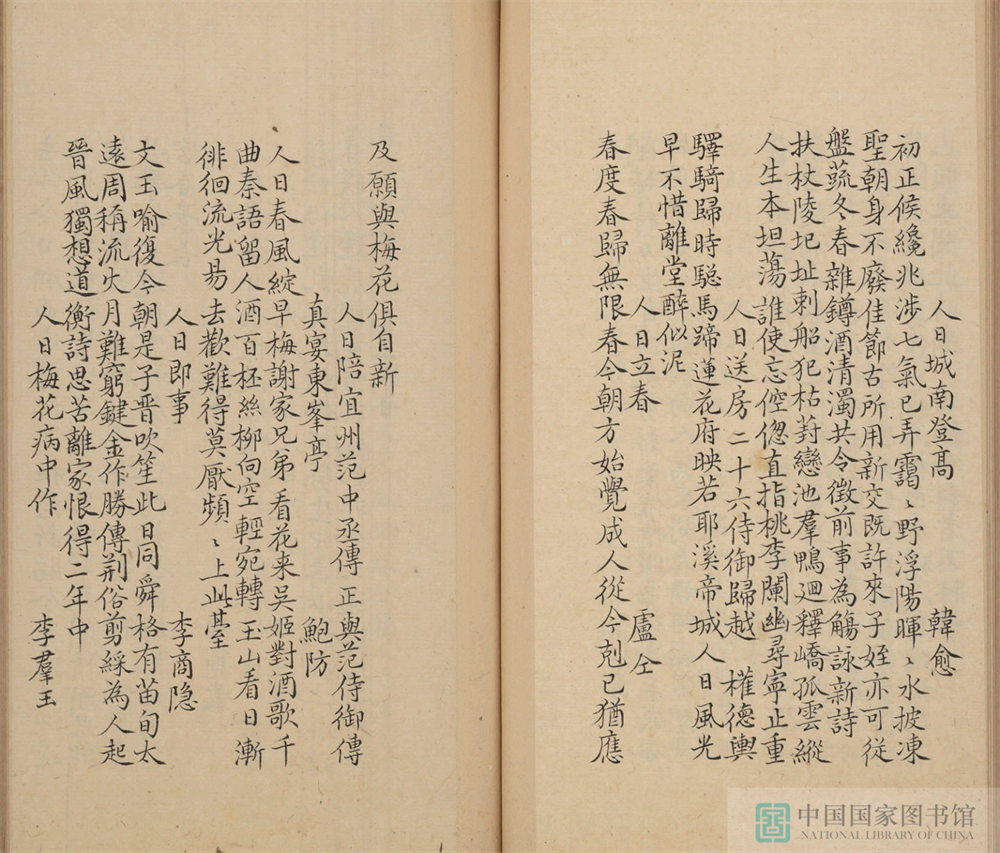 人日城南登高 韓愈
初正候纔兆涉七氣已弄靄〻野浮陽暉〻水披凍
聖朝身不廢佳節古所用新交既許來子姪亦可從
盤蔬冬春雜鐏酒清濁共令徵前事為觴詠新詩
扶杖陵圯址刺船犯枯葑戀池羣鴨迴釋嶠孤雲縱
人生本坦蕩誰使忘倥偬直指桃李闌幽尋寧止重
人日送房二十六侍御歸越 權德輿
驛騎歸時驄馬蹄蓮花府映若耶溪帝城人日風光
早不惜離堂醉似泥
人日立春 盧仝
春度春歸無限春今朝方始覺成人從今剋己猶應
及願與梅花俱自新
人日陪宜州范中丞傳正與范侍御傳
真宴東峯亭 鮑防
人日春風綻早梅謝家兄弟看花来吳姬對酒歌千
曲秦語留人酒百柸絲柳向空輕宛轉玉山看日漸
徘徊流光易去歡難得莫厭頻〻上此臺
人日即事 李商隐
文王喻復今朝是子晉吹笙此日同舜格有苗旬太
遠周稱流火月難窮鍵金作勝傳荆俗剪綵為人起
晉風獨想道衡詩思苦離家恨得二年中
人日梅花病中作 李羣玉
中国国家图书馆
NATIONAL LIBRARY OF CHINA